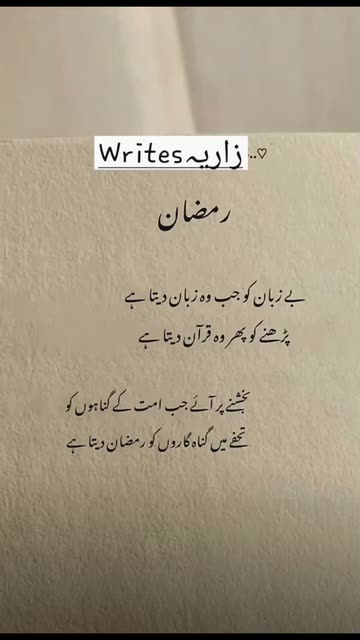 زاریہ Writes..♡
رمضان
بے زبان کو جب وہ زبان دیتا ہے
پڑھنے کو پھر وہ قرآن دیتا ہے
بخشنے پر آئے جب امت کے گناہوں کو
تحفے میں گناہ گاروں کو رمضان دیتا ہے